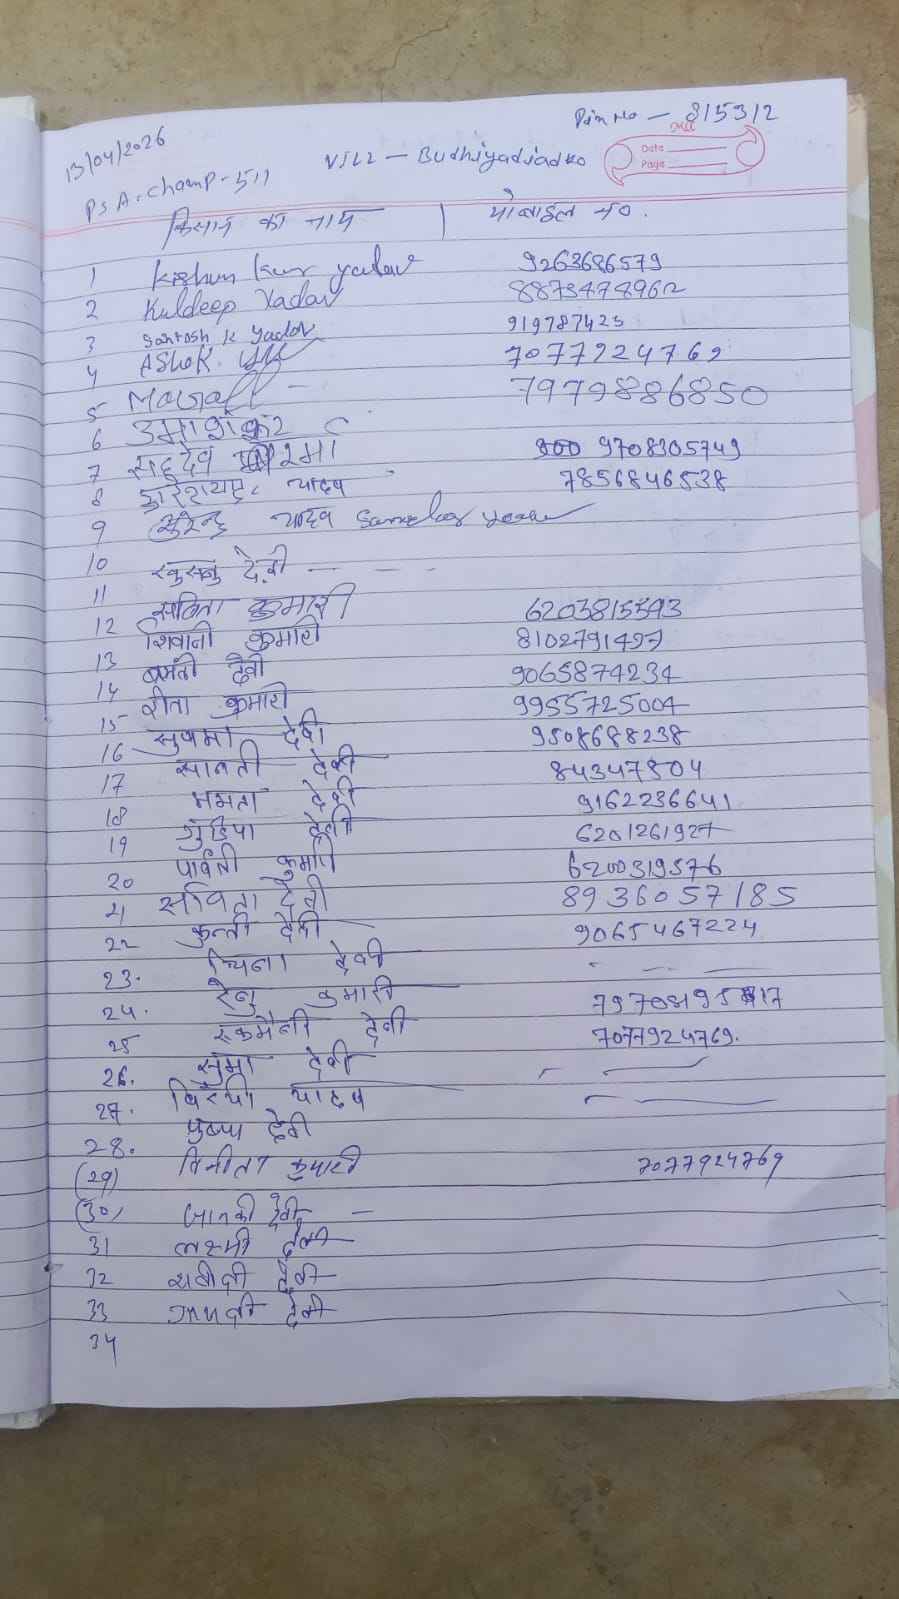 Pin No - 815312
13/04/2026
Date
Page
VILL - Budhiyadiadko
PSA - Champ - 511
किसान का नाम | मोबाइल नं०.
1 Kishun Kur yadav 9263686579
2 Kuldeep Yadav 8873474962
3 Santosh k yadav 919787423
4 Ashok 7077924769
5 7979886850
6 उमा शंकर
7 सहदेव शर्मा 9708305749
8 यादव 7856846538
9 सुरेन्द्र यादव
10
11 देवी
12 सविता कुमारी 6203815393
13 शिवानी कुमारी 8102791497
14 बसंती देवी 9065874234
15 रीता कुमारी 9955725004
16 सुषमा देवी 9508688238
17 देवी 84347804
18 ममता देवी 9162236641
19 गुड़िया देवी 6201261927
20 पार्वती कुमारी 6200319576
21 सविता देवी 8936057185
22 कुन्ती देवी 9065467224
23. देवी
24. रेनु कुमारी
25 रुकमैनी देवी 7077924769.
26. सुमा देवी
27. यादव
28. पुष्पा देवी
(29) विनीता कुमारी 7077924769
(30) जानकी देवी
31 लक्ष्मी देवी
32 देवी
33 देवी
34